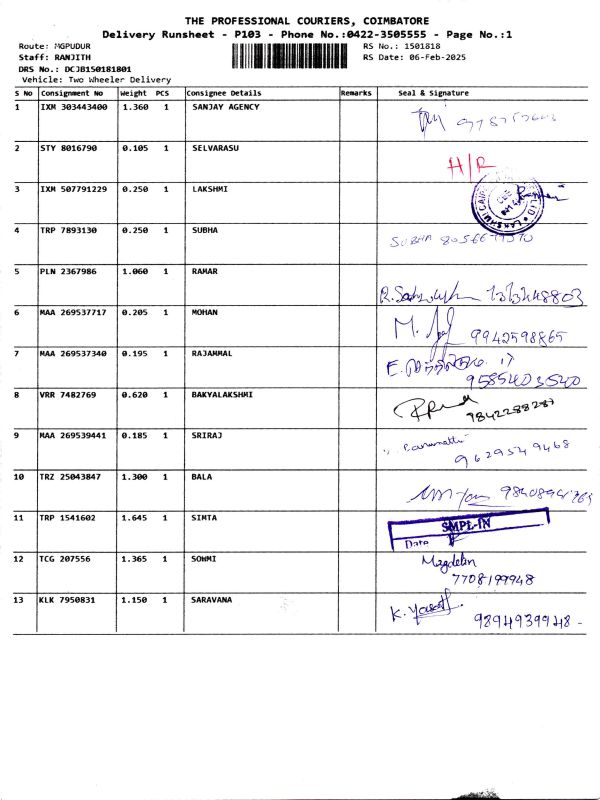 THE PROFESSIONAL COURIERS, COIMBATORE
Delivery Runsheet - P103 - Phone No.:0422-3505555 - Page No.:1
Route: MGPUDUR RS No.: 1501818
Staff: RANJITH RS Date: 06-Feb-2025
DRS No.: DCJB150181801
Vehicle: Two Wheeler Delivery
S No Consignment No Weight PCS Consignee Details Remarks Seal & Signature
1 IXM 303443400 1.360 1 SANJAY AGENCY
2 STY 8016790 0.105 1 SELVARASU H/R
3 IXM 507791229 0.250 1 LAKSHMI
4 TRP 7893130 0.250 1 SUBHA SUBHA
5 PLN 2367986 1.060 1 RAMAR
6 MAA 269537717 0.205 1 MOHAN 9942598865
7 MAA 269537340 0.195 1 RAJAMMAL 9585403540
8 VRR 7482769 0.620 1 BAKYALAKSHMI 9842288287
9 MAA 269539441 0.185 1 SRIRAJ 9629549468
10 TRZ 25043847 1.300 1 BALA
11 TRP 1541602 1.645 1 SIMTA SMPL-IN
Date
12 TCG 207556 1.365 1 SOWMI Magdelin
7708199948
13 KLK 7950831 1.150 1 SARAVANA 9894939948